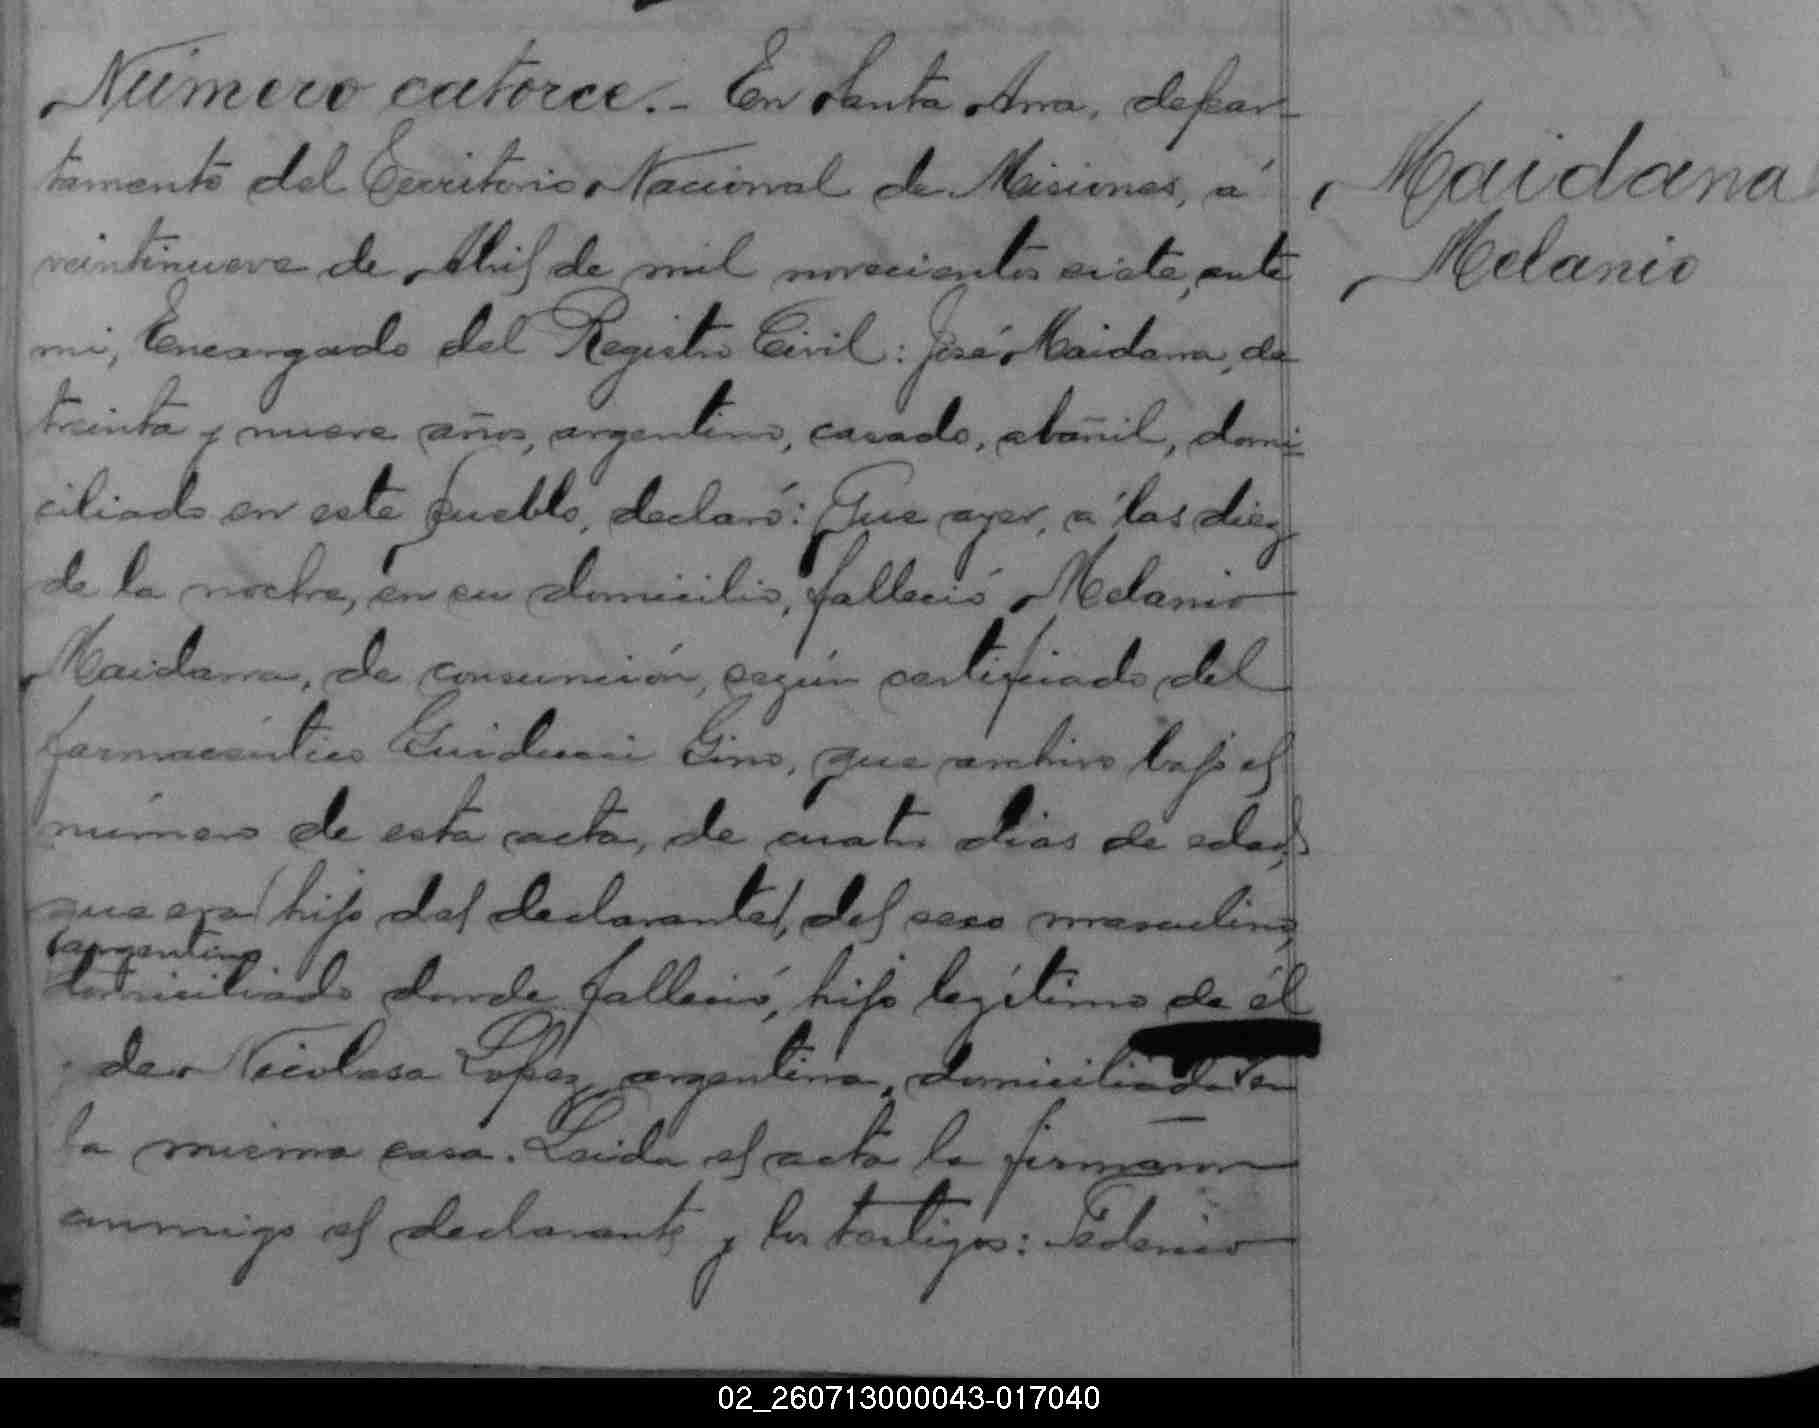 Número catorce.- En Santa Ana, depar-
tamento del Territorio Nacional de Misiones, á
veintinueve de Abril de mil novecientos siete, ante
mi, Encargado del Registro Civil: José Maidana, de
treinta y nueve años, argentino, casado, albañil, domi-
ciliado en este pueblo, declaró: Que ayer, á las diez
de la noche, en su domicilio, falleció Melanio
Maidana, de consunción, según certificado del
farmacéutico Guiducci Gino, que archivo bajo el
número de esta acta, de cuatro dias de edad,
que era hijo del declarante, del sexo masculino,
argentino
domiciliado donde falleció, hijo legítimo de él
de Nicolasa Lopez, argentina, domiciliada en
la misma casa. Leida el acta la firmaron
conmigo el declarante y los testigos: Federico
Maidana
Melanio
02_260713000043-017040